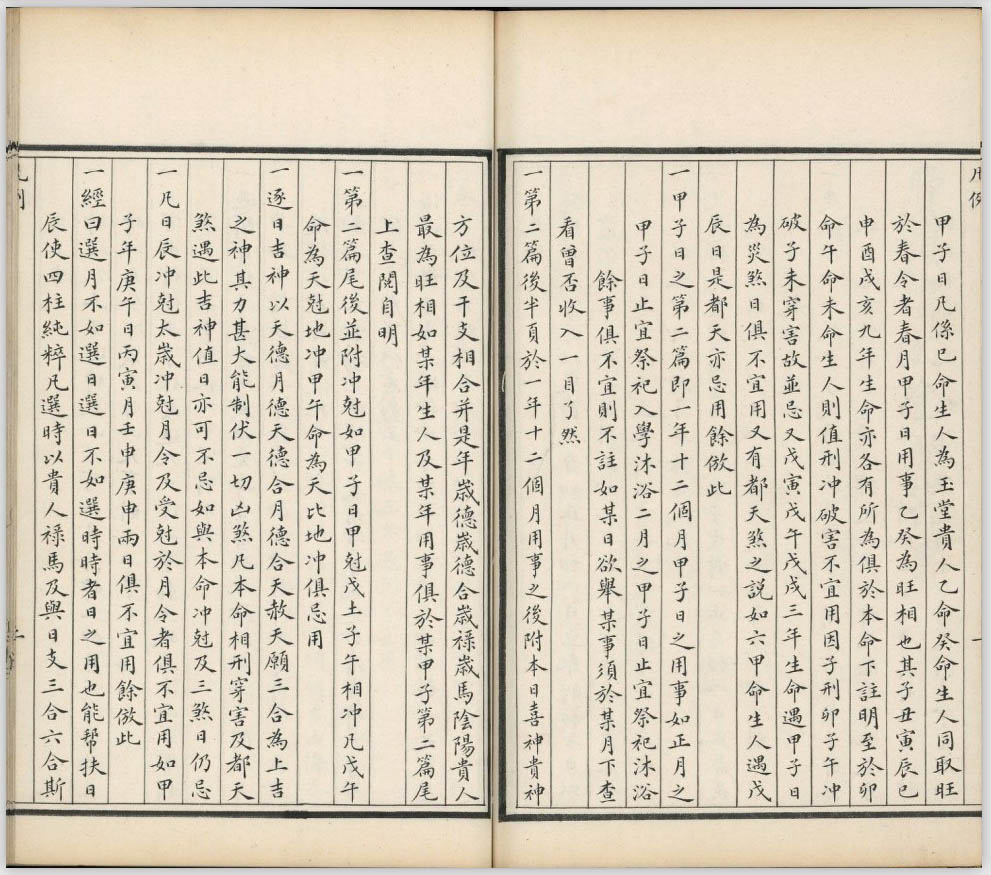 凡例
甲子日凡係巳命生人為玉堂貴人乙命癸命生人同取旺
於春令者春月甲子日用事乙癸為旺相也其子丑寅辰巳
申酉戌亥九年生命亦各有所為俱於本命下註明至於卯
命午命未命生人則值刑冲破害不宜用因子刑卯子午冲
破子未穿害故並忌又戊寅戊午戊戌三年生命遇甲子日
為災煞日俱不宜用又有都天煞之説如六甲命生人遇戊
辰日是都天亦忌用餘倣此
一甲子日之第二篇即一年十二個月甲子日之用事如正月之
甲子日止宜祭祀入學沐浴二月之甲子日止宜祭祀沐浴
餘事俱不宜則不註如某日欲舉某事須於某月下查
看曾否收入一目了然
一第二篇後半頁於一年十二個月用事之後附本日喜神貴神
方位及干支相合并是年歲德歲德合歲祿歲馬陰陽貴人
最為旺相如某年生人及某年用事俱於某甲子第二篇尾
上查閱自明
一第二篇尾後並附冲尅如甲子日甲尅戊土子午相冲凡戊午
命為天尅地冲甲午命為天比地冲俱忌用
一逐日吉神以天德月德天德合月德合天赦天願三合為上吉
之神其力甚大能制伏一切凶煞凡本命相刑穿害及都天
煞遇此吉神值日亦可不忌如與本命冲尅及三煞日仍忌
一凡日辰冲尅太歲冲尅月令及受尅於月令者俱不宜用如甲
子年庚午日丙寅月壬申庚申兩日俱不宜用餘倣此
一經曰選月不如選日選日不如選時時者日之用也能幇扶日
辰使四柱純粹凡選時以貴人祿馬及與日支三合六合斯